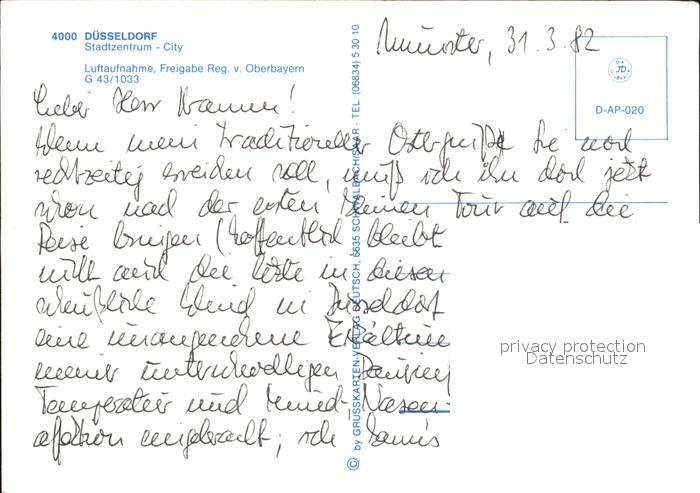 4000 DÜSSELDORF
Stadtzentrum - City
Luftaufnahme, Freigabe Reg. v. Oberbayern
G 43/1033
Münster, 31.3.82
D-AP-020
Lieber Herr
Wenn mein traditioneller Ostergruß Sie noch
rechtzeitig erreichen soll, muß ich ihn doch jetzt
schon nach der ersten kleinen Tour auf die
Reise bringen (hoffentlich bleibt
nicht auch die letzte in diesen
scheußliche Wind in Düsseldorf
eine unangenehme Erkältung
meiner unterschwelligen
Temperatur und Mund-, Nasen-
affektion eingebracht; ich
© by GRUSSKARTEN-VERLAG DEUTSCH, 6635 SCHWALBACH/SAAR - TEL. (06834) 5 30 10
privacy protection
Datenschutz